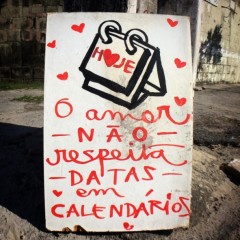 HOJE
O amor
- NÃO -
respeita
- DATAS -
em
CALENDÁRIOS